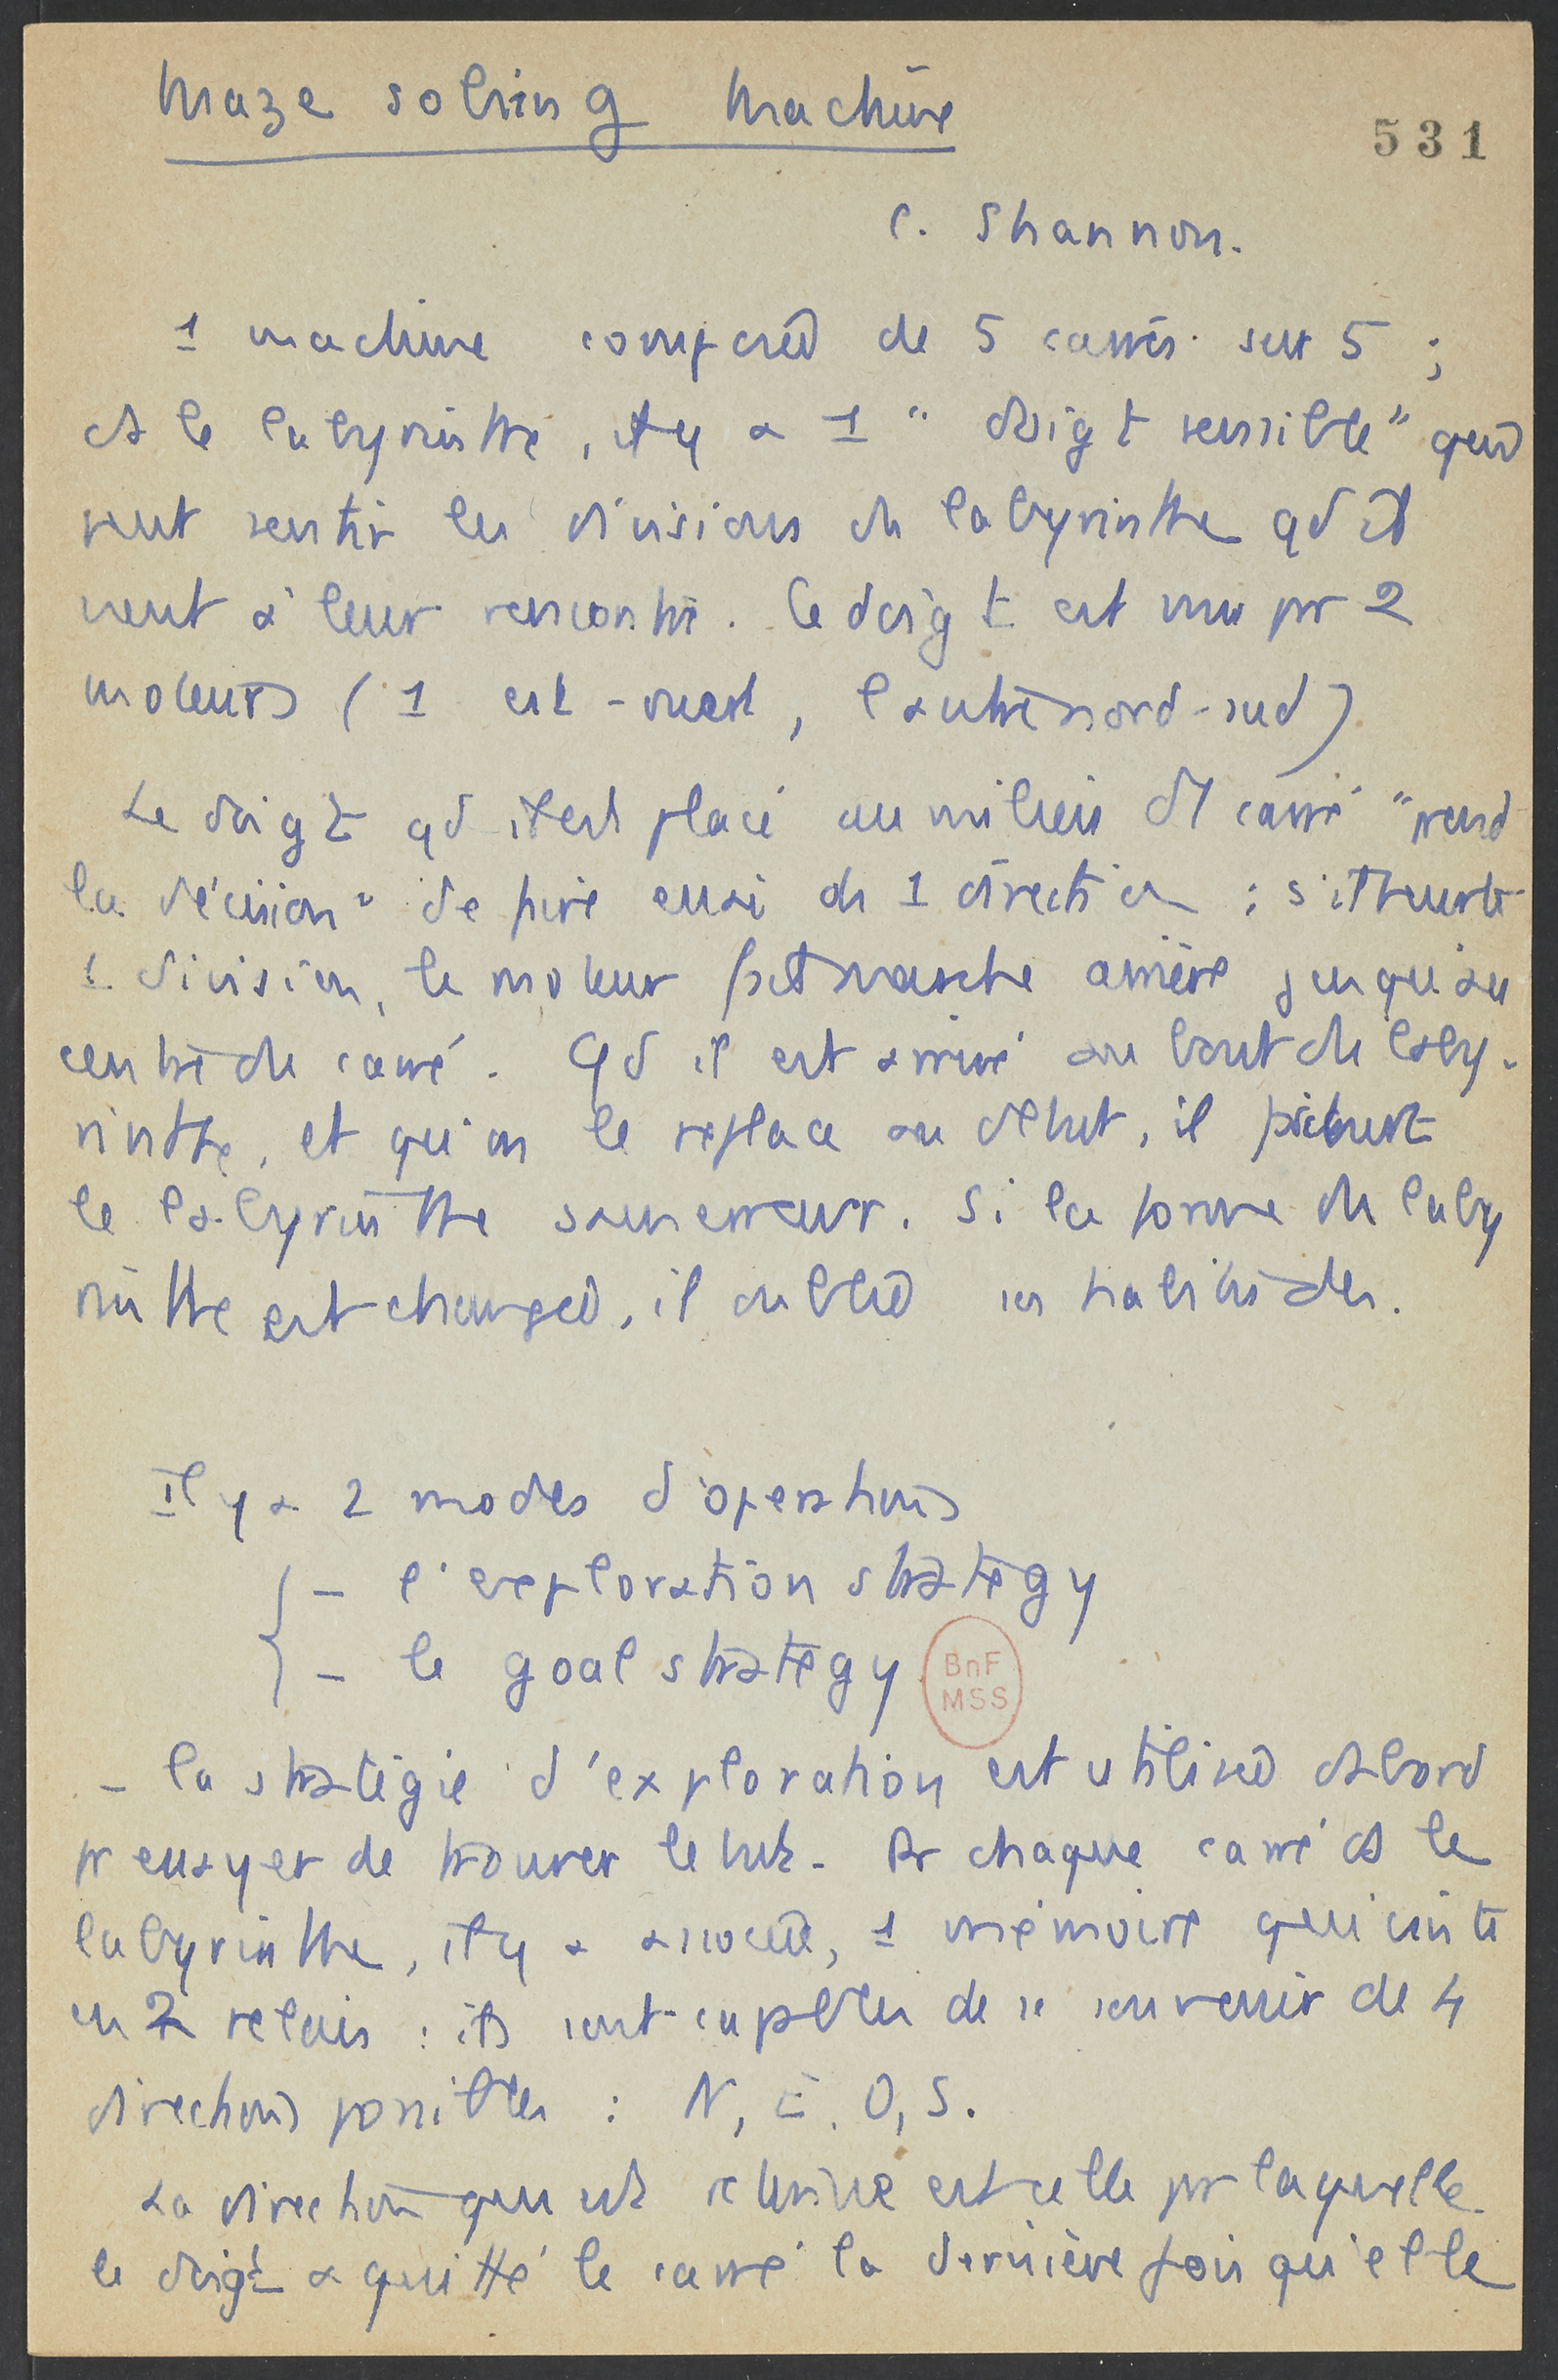 Maze solving Machine
531
C. Shannon.
1 machine composée de 5 carrés sur 5 ;
ds le labyrinthe, il y a 1 " doigt sensible" qui
peut sentir les divisions du labyrinthe qd il
vient à leur rencontre. Ce doigt est mu pr 2
moteurs ( 1 est - ouest, l'autre nord - sud )
Le doigt qd il est placé au milieu d'1 carré "prend
la décision" de faire essai ds 1 direction ; s'il heurte
1 division, le moteur fait marche arrière jusqu'au
centre du carré. Qd il est arrivé au bout du laby-
rinthe, et qu'on le replace au début, il parcourt
le labyrinthe sans erreur. Si la forme du laby
rinthe est changée, il oublie ses habitudes.
Il y a 2 modes d'opérations
- l'exploration strategy
- le goal strategy
BnF
MSS
- la stratégie d'exploration est utilisée d'abord
pr essayer de trouver le but. Pr chaque carré ds le
labyrinthe, il y a associée, 1 mémoire qui consiste
en 2 relais : ils sont capables de se souvenir de 4
directions possibles : N, E, O, S.
La direction qui est retenue est celle pr laquelle
le doigt a quitté le carré la dernière fois qu'elle